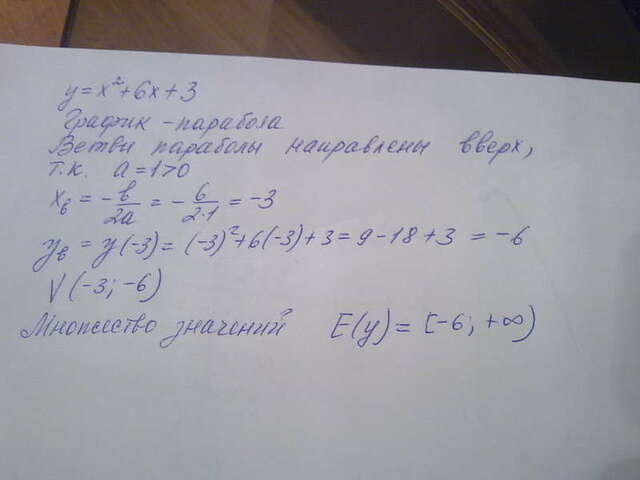 y = x² + 6x + 3
График - парабола
Ветви параболы направлены вверх,
т.к. a = 1 > 0
xв = -b/2a = -6/2·1 = -3
yв = y(-3) = (-3)² + 6(-3) + 3 = 9 - 18 + 3 = -6
V(-3; -6)
Множество значений E(y) = [-6; +∞)